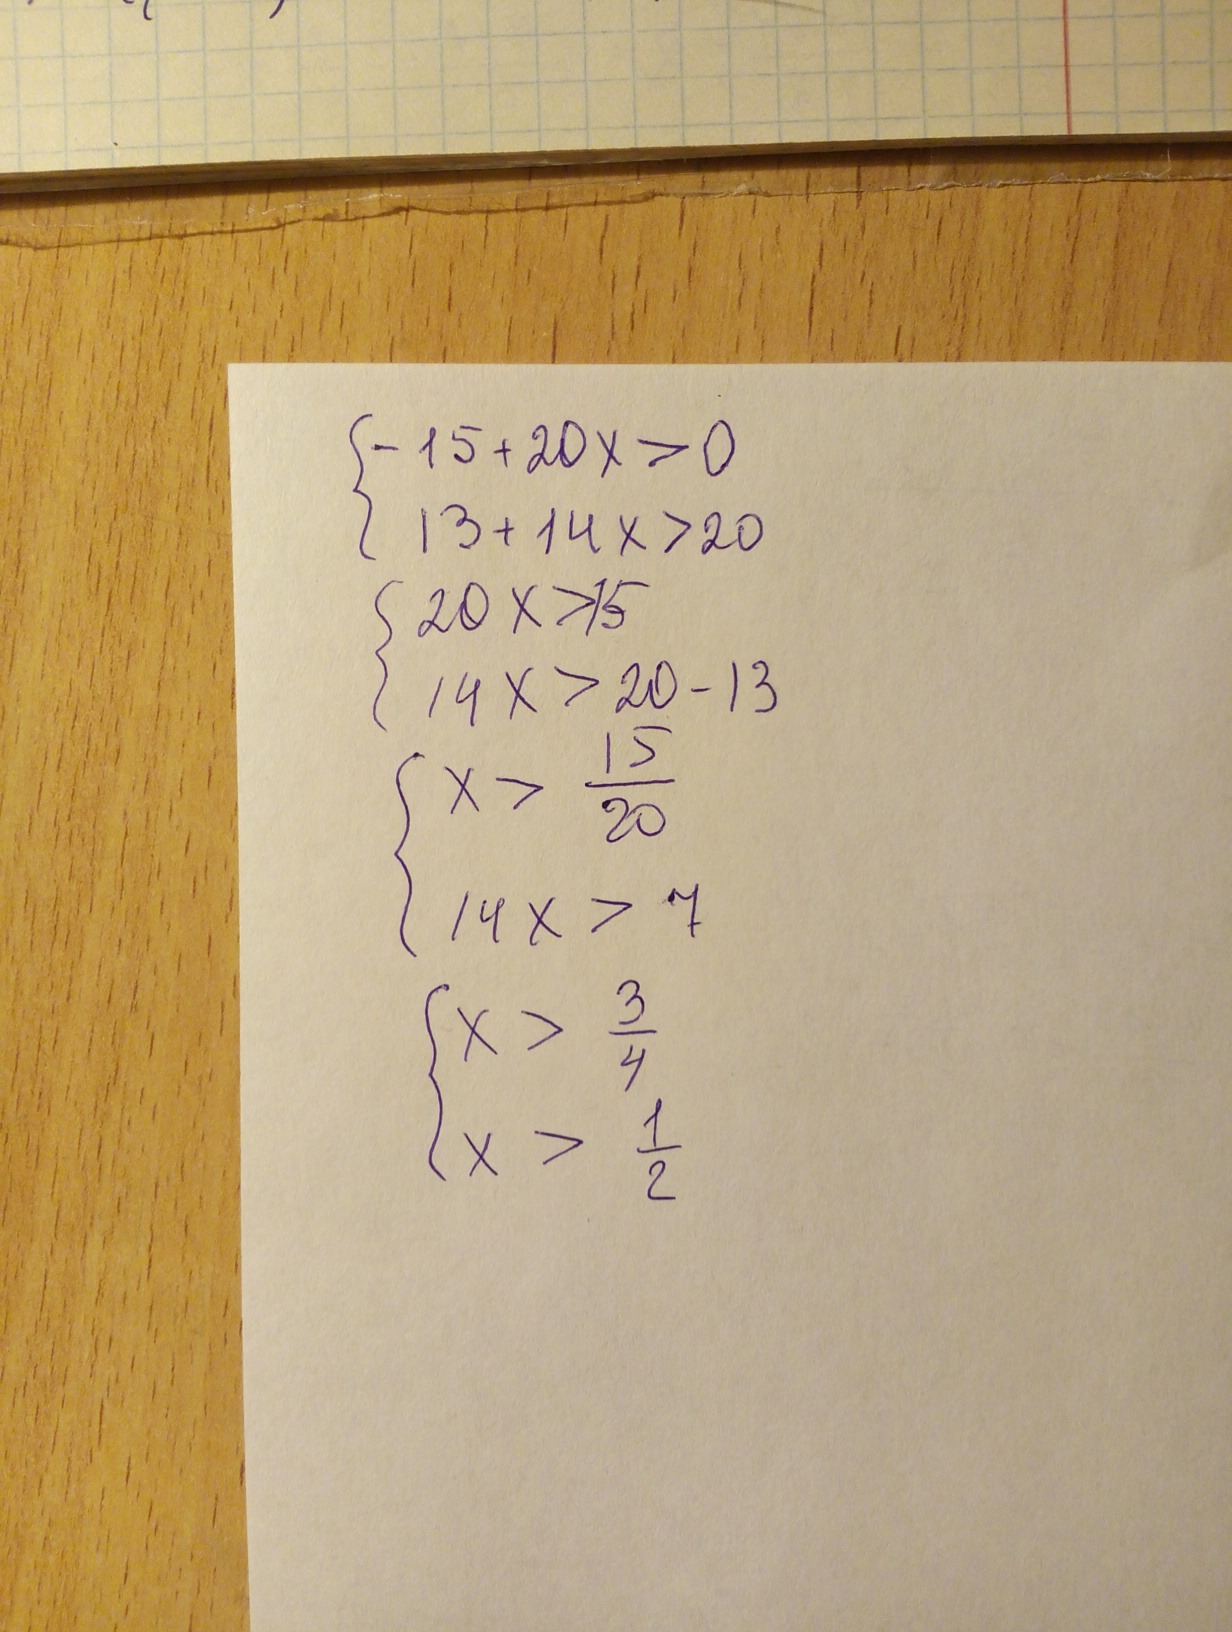 { -15+20x>0
13+14x>20
{ 20x>15
14x>20-13
{ x> 15/20
14x>7
{ x> 3/4
x> 1/2